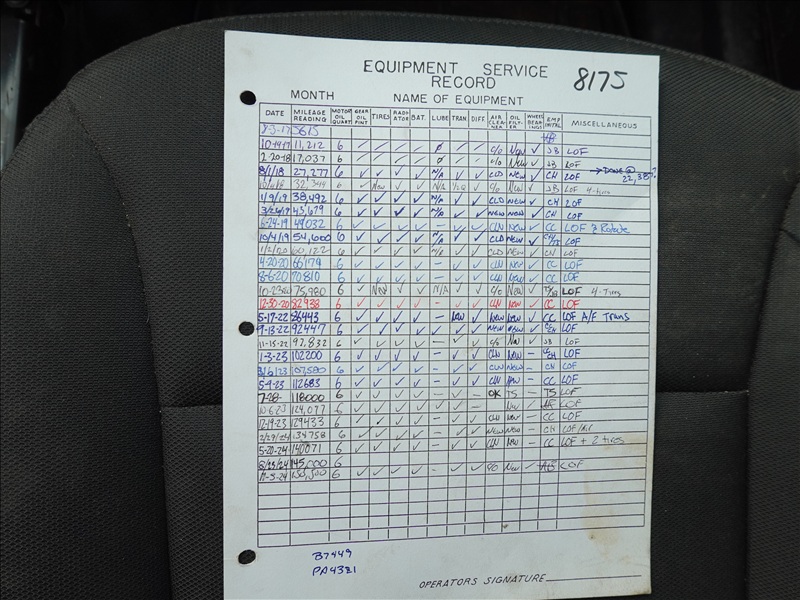 EQUIPMENT SERVICE
RECORD
8175
MONTH NAME OF EQUIPMENT
DATE MILEAGE READING MOTOR OIL QUART GEAR OIL PINT TIRES RADIATOR BAT. LUBE TRAN. DIFF. AIR CLEANER OIL FILTER WHEEL BEARINGS EMP INITIAL MISCELLANEOUS
8-3-17 5615
10-19-17 11,212 6 ✓ ✓ ✓ ✓ Ø ✓ ✓ c/o New ✓ JB LOF
2-20-18 17,037 6 ✓ ✓ ✓ ✓ Ø ✓ ✓ c/o New ✓ JB LOF
8/1/18 27,277 6 ✓ ✓ ✓ ✓ N/A ✓ ✓ CLD NEW ✓ CH LOF → DONE @ 22,387?
32,344 6 ✓ New ✓ ✓ N/A ✓ c/o New ✓ JB LOF 4-tires
1/9/19 38,492 6 ✓ ✓ ✓ ✓ N/A ✓ ✓ CLD NEW ✓ CH LOF
3/26/19 43,679 6 ✓ ✓ ✓ ✓ N/A ✓ ✓ NEW NEW ✓ CH LOF
6-24-19 49032 6 ✓ ✓ ✓ ✓ ✓ ✓ CLN NEW ✓ CC LOF & Rotate
10/4/19 54,600 6 ✓ ✓ ✓ ✓ N/A ✓ ✓ CLD NEW ✓ LOF
1/2/20 60,122 6 ✓ ✓ ✓ ✓ N/A ✓ ✓ CLD NEW ✓ CH LOF
4-20-20 66179 6 ✓ ✓ ✓ ✓ – ✓ ✓ CLN NEW ✓ CC LOF
8-6-20 70810 6 ✓ ✓ ✓ ✓ – ✓ ✓ CLN NEW ✓ CC LOF
10-23-20 75,980 6 ✓ New ✓ ✓ N/A ✓ ✓ c/o New ✓ LOF 4-Tires
12-30-20 82938 6 ✓ ✓ ✓ ✓ – ✓ ✓ CLN NEW ✓ CC LOF
5-17-22 86443 6 ✓ ✓ ✓ ✓ – NEW ✓ NEW NEW ✓ CC LOF A/F Trans
9-13-22 92447 6 ✓ ✓ ✓ ✓ – ✓ ✓ NEW NEW ✓ LOF
11-15-22 97,832 6 ✓ ✓ ✓ ✓ – ✓ ✓ c/o New ✓ JB LOF
1-3-23 102200 6 ✓ ✓ ✓ ✓ – ✓ ✓ CLN NEW – LOF
3/6/23 107,580 6 ✓ ✓ ✓ ✓ – ✓ ✓ CLN NEW – CH LOF
5-9-23 112683 6 ✓ ✓ ✓ ✓ – ✓ ✓ CLN NEW – CC LOF
7-28- 118000 6 ✓ ✓ ✓ ✓ – ✓ – OK TS – TS LOF
10-6-23 124,077 6 ✓ ✓ ✓ ✓ ✓ ✓ New – LOF
12-19-23 129433 6 ✓ ✓ ✓ ✓ – ✓ ✓ CLN NEW – CC LOF
2/29/24 134758 6 ✓ ✓ ✓ ✓ – ✓ ✓ NEW NEW – CH LOF/Air
5-20-24 140071 6 ✓ ✓ ✓ ✓ – ✓ ✓ CLN NEW – CC LOF + 2 tires
8/23/24 145,000 6
11-5-24 150,500 6 ✓ ✓ ✓ ✓ – ✓ ✓ c/o New – LOF
B7449
PA4321
OPERATORS SIGNATURE